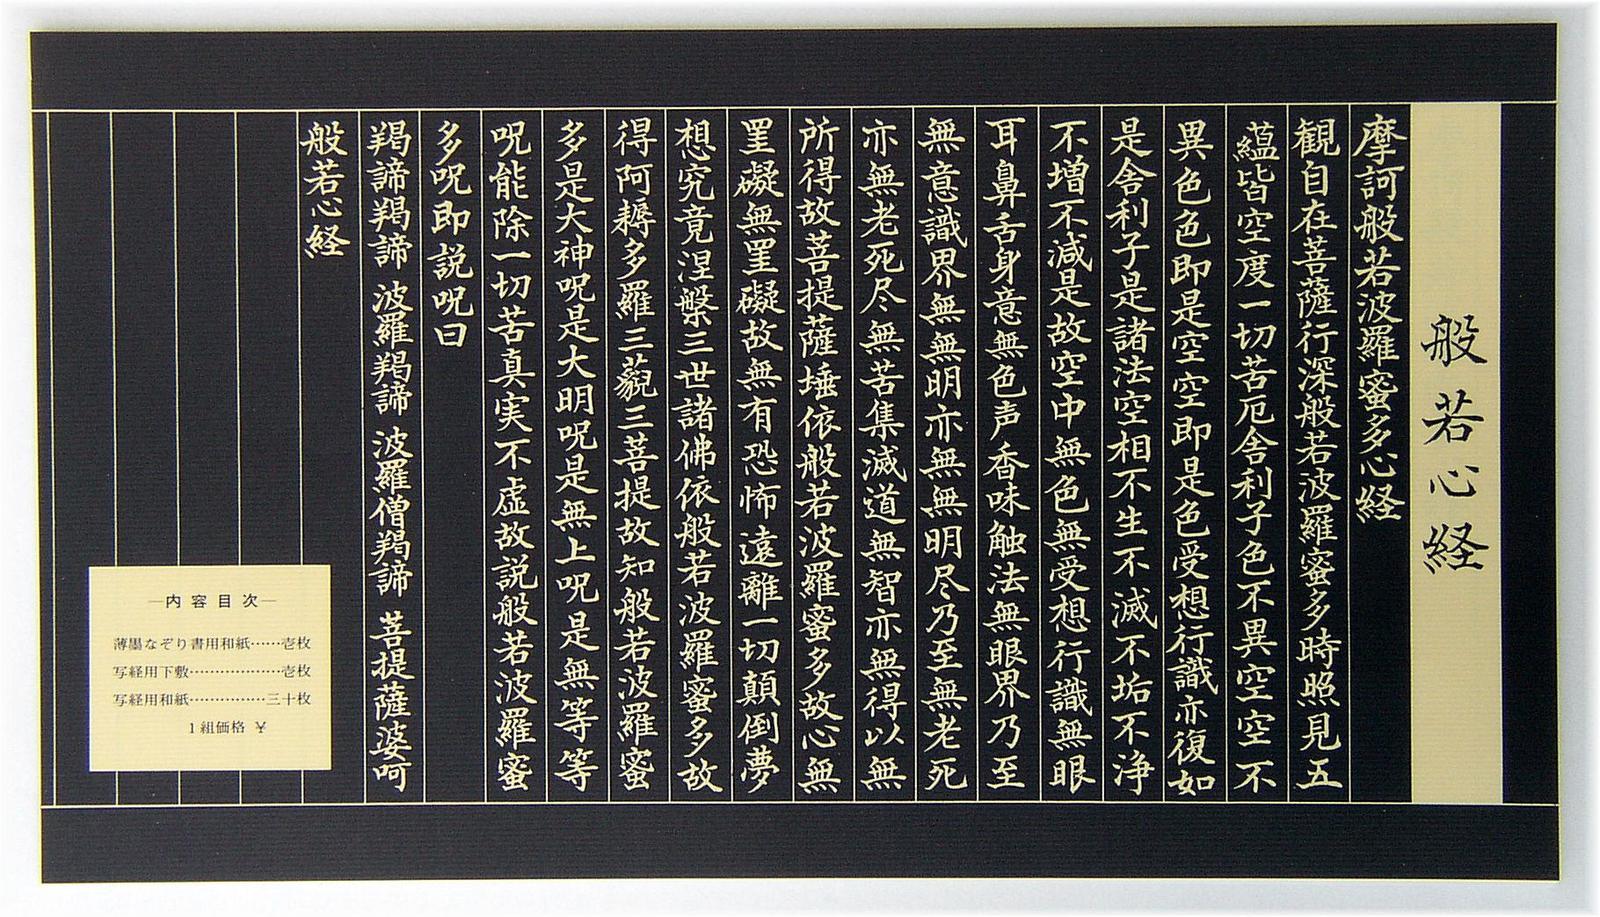 般若心経
摩訶般若波羅蜜多心経
観自在菩薩行深般若波羅蜜多時照見五
蘊皆空度一切苦厄舎利子色不異空空不
異色色即是空空即是色受想行識亦復如
是舎利子是諸法空相不生不滅不垢不浄
不増不減是故空中無色無受想行識無眼
耳鼻舌身意無色声香味触法無眼界乃至
無意識界無無明亦無無明尽乃至無老死
亦無老死尽無苦集滅道無智亦無得以無
所得故菩提薩埵依般若波羅蜜多故心無
罣礙無罣礙故無有恐怖遠離一切顛倒夢
想究竟涅槃三世諸佛依般若波羅蜜多故
得阿耨多羅三藐三菩提故知般若波羅蜜
多是大神呪是大明呪是無上呪是無等等
呪能除一切苦真実不虚故説般若波羅蜜
多呪即説呪曰
羯諦羯諦 波羅羯諦 波羅僧羯諦 菩提薩婆呵
般若心経
―内容目次―
薄墨なぞり書用和紙……壱枚
写経用下敷……………壱枚
写経用和紙……………三十枚
1組価格 ￥